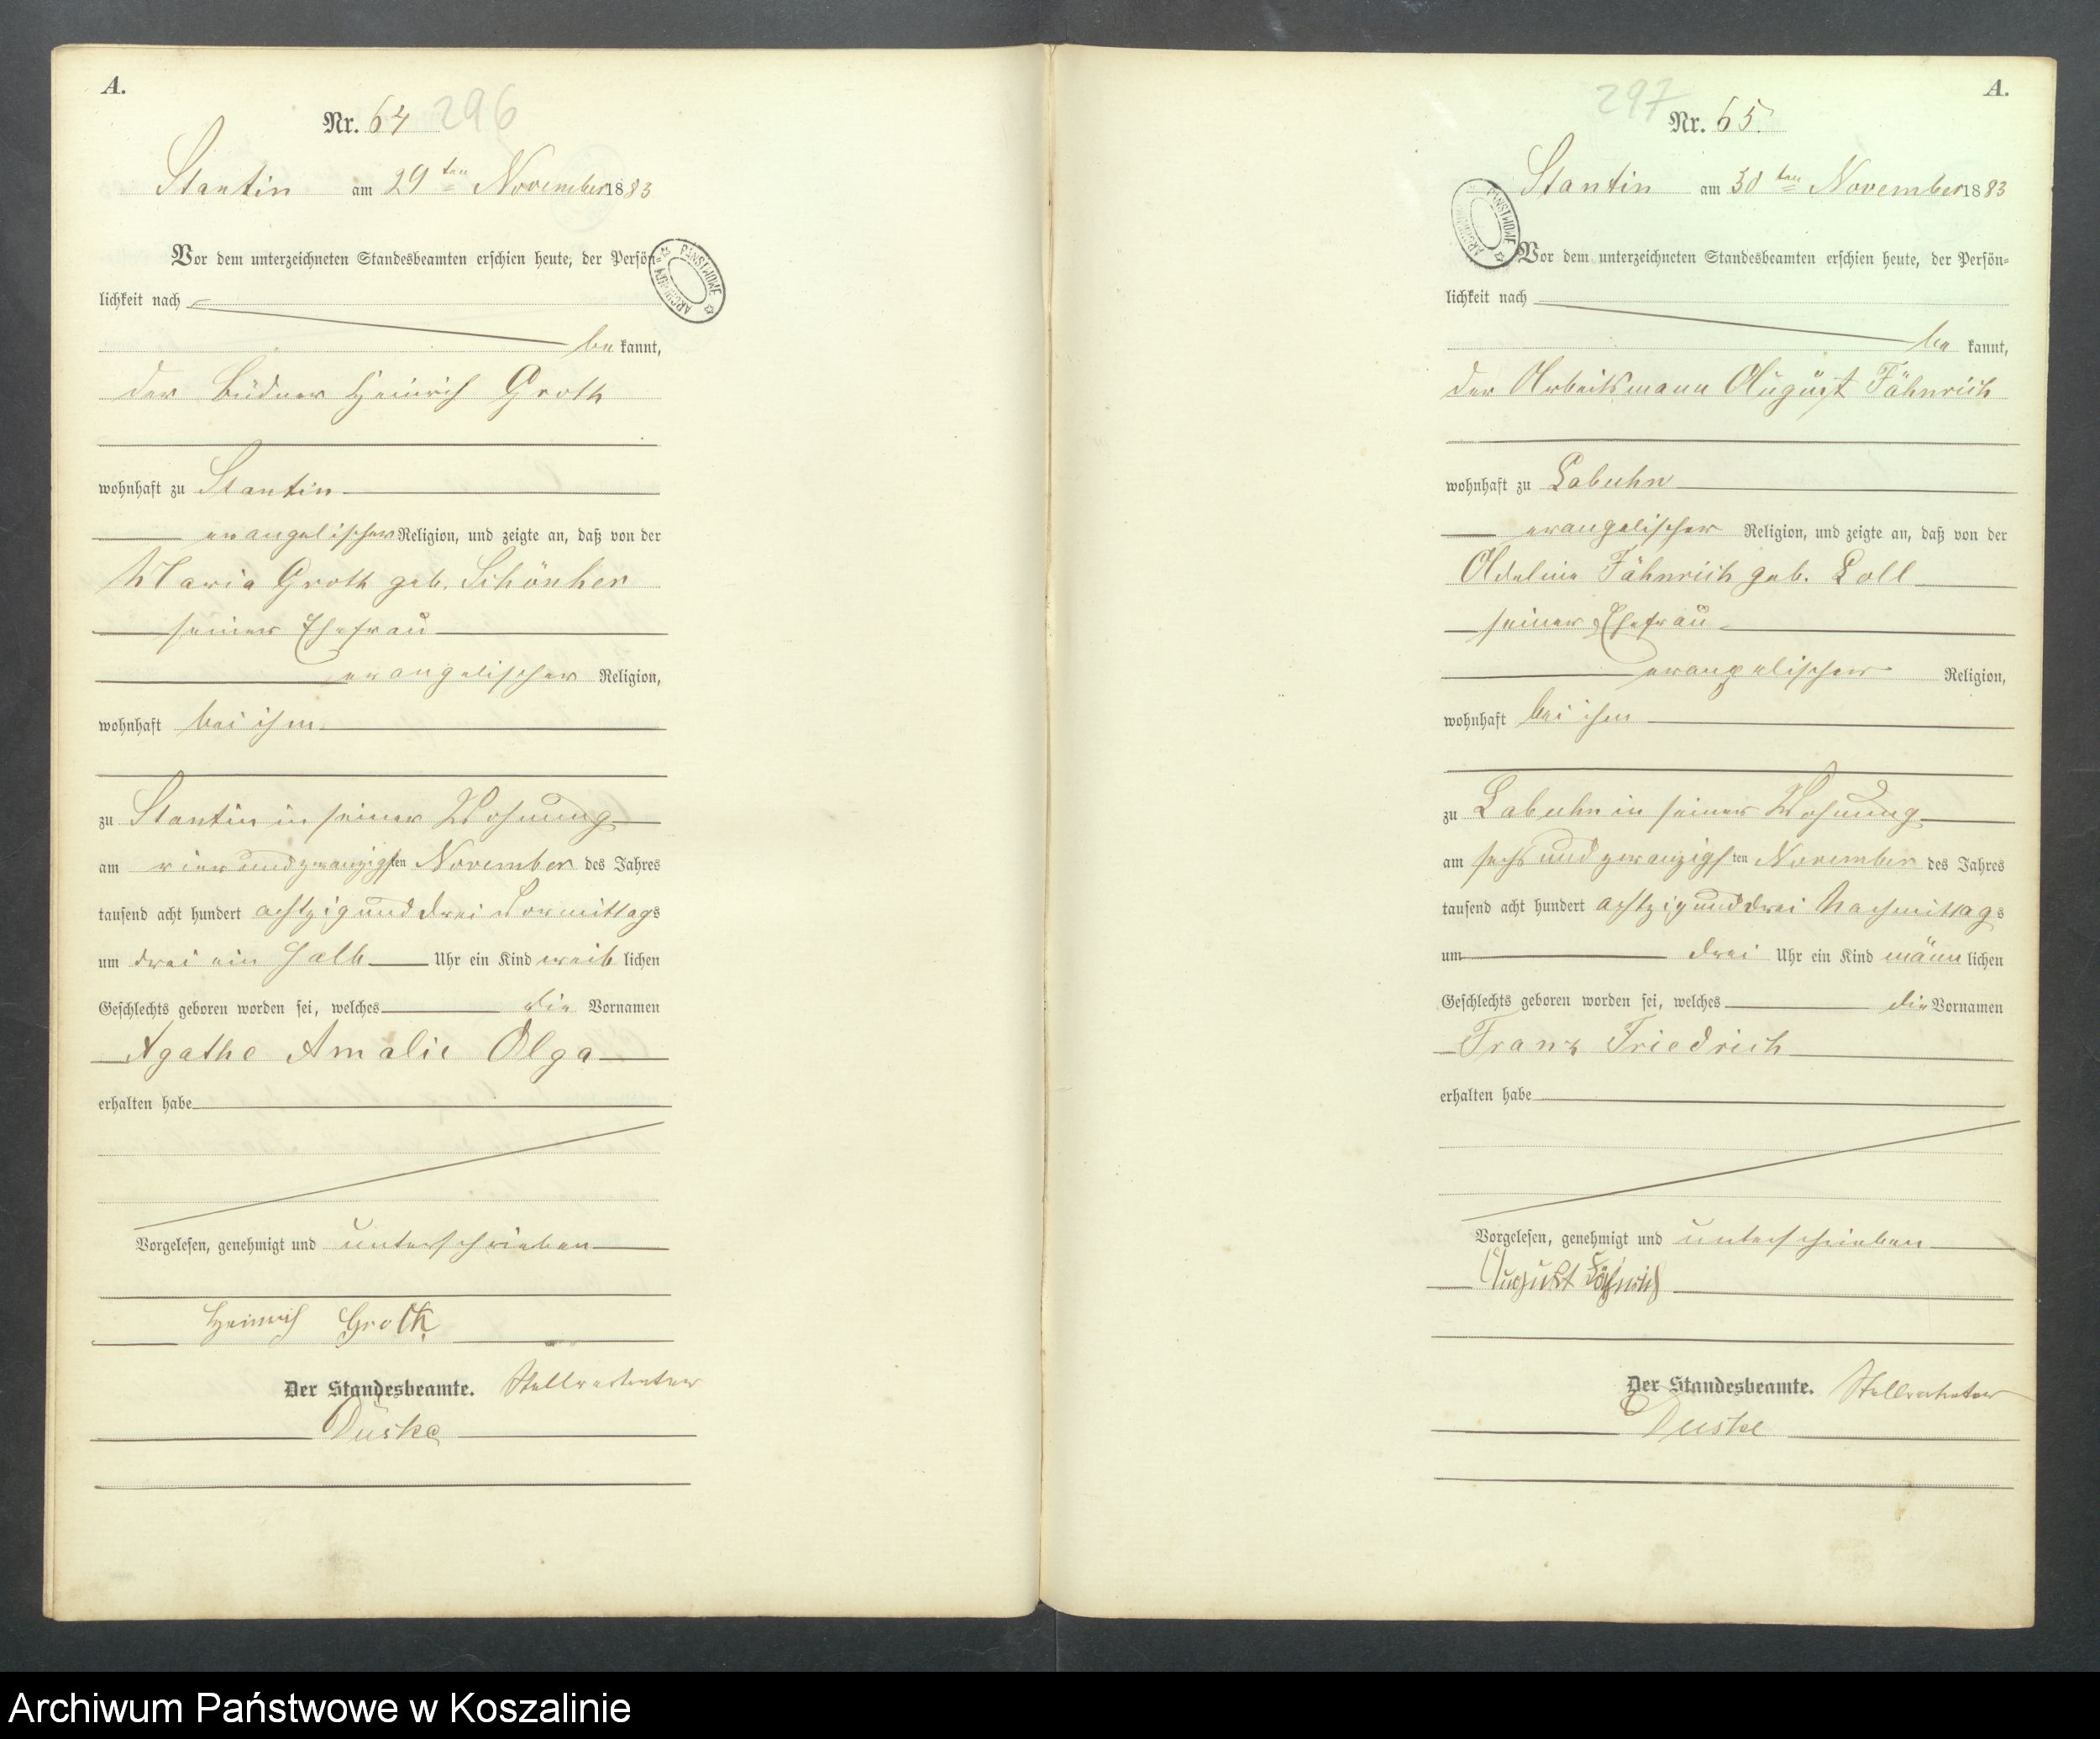 A.
Nr. 64 296
Stantin am 29ten November 1883
Vor dem unterzeichneten Standesbeamten erschien heute, der Persön-
lichkeit nach
be kannt,
der Büdner Heinrich Groth
wohnhaft zu Stantin
evangelischer Religion, und zeigte an, daß von der
Maria Groth geb. Schönher
seiner Ehefrau
evangelischer Religion,
wohnhaft bei ihm
zu Stantin in seiner Wohnung
am vierundzwanzigsten November des Jahres
tausend acht hundert achtzig und drei Vormittags
um drei ein halb Uhr ein Kind weib lichen
Geschlechts geboren worden sei, welches die Vornamen
Agathe Amalie Olga
erhalten habe
Vorgelesen, genehmigt und unterschrieben
Heinrich Groth
Der Standesbeamte. Stellvertreter
Düske
ARCHIWUM PAŃSTWOWE
A.
297
Nr. 65.
Stantin am 30ten November 1883
Vor dem unterzeichneten Standesbeamten erschien heute, der Persön-
lichkeit nach
be kannt,
der Arbeitsmann August Fähnrich
wohnhaft zu Labuhn
evangelischer Religion, und zeigte an, daß von der
Adeline Fähnrich geb. Loll
seiner Ehefrau
evangelischer Religion,
wohnhaft bei ihm
zu Labuhn in seiner Wohnung
am sechsundzwanzigsten November des Jahres
tausend acht hundert achtzig und drei Nachmittags
um drei Uhr ein Kind männ lichen
Geschlechts geboren worden sei, welches die Vornamen
Franz Friedrich
erhalten habe
Vorgelesen, genehmigt und unterschrieben
August Fähnrich
Der Standesbeamte. Stellvertreter
Duske
ARCHIWUM PAŃSTWOWE
Archiwum Państwowe w Koszalinie